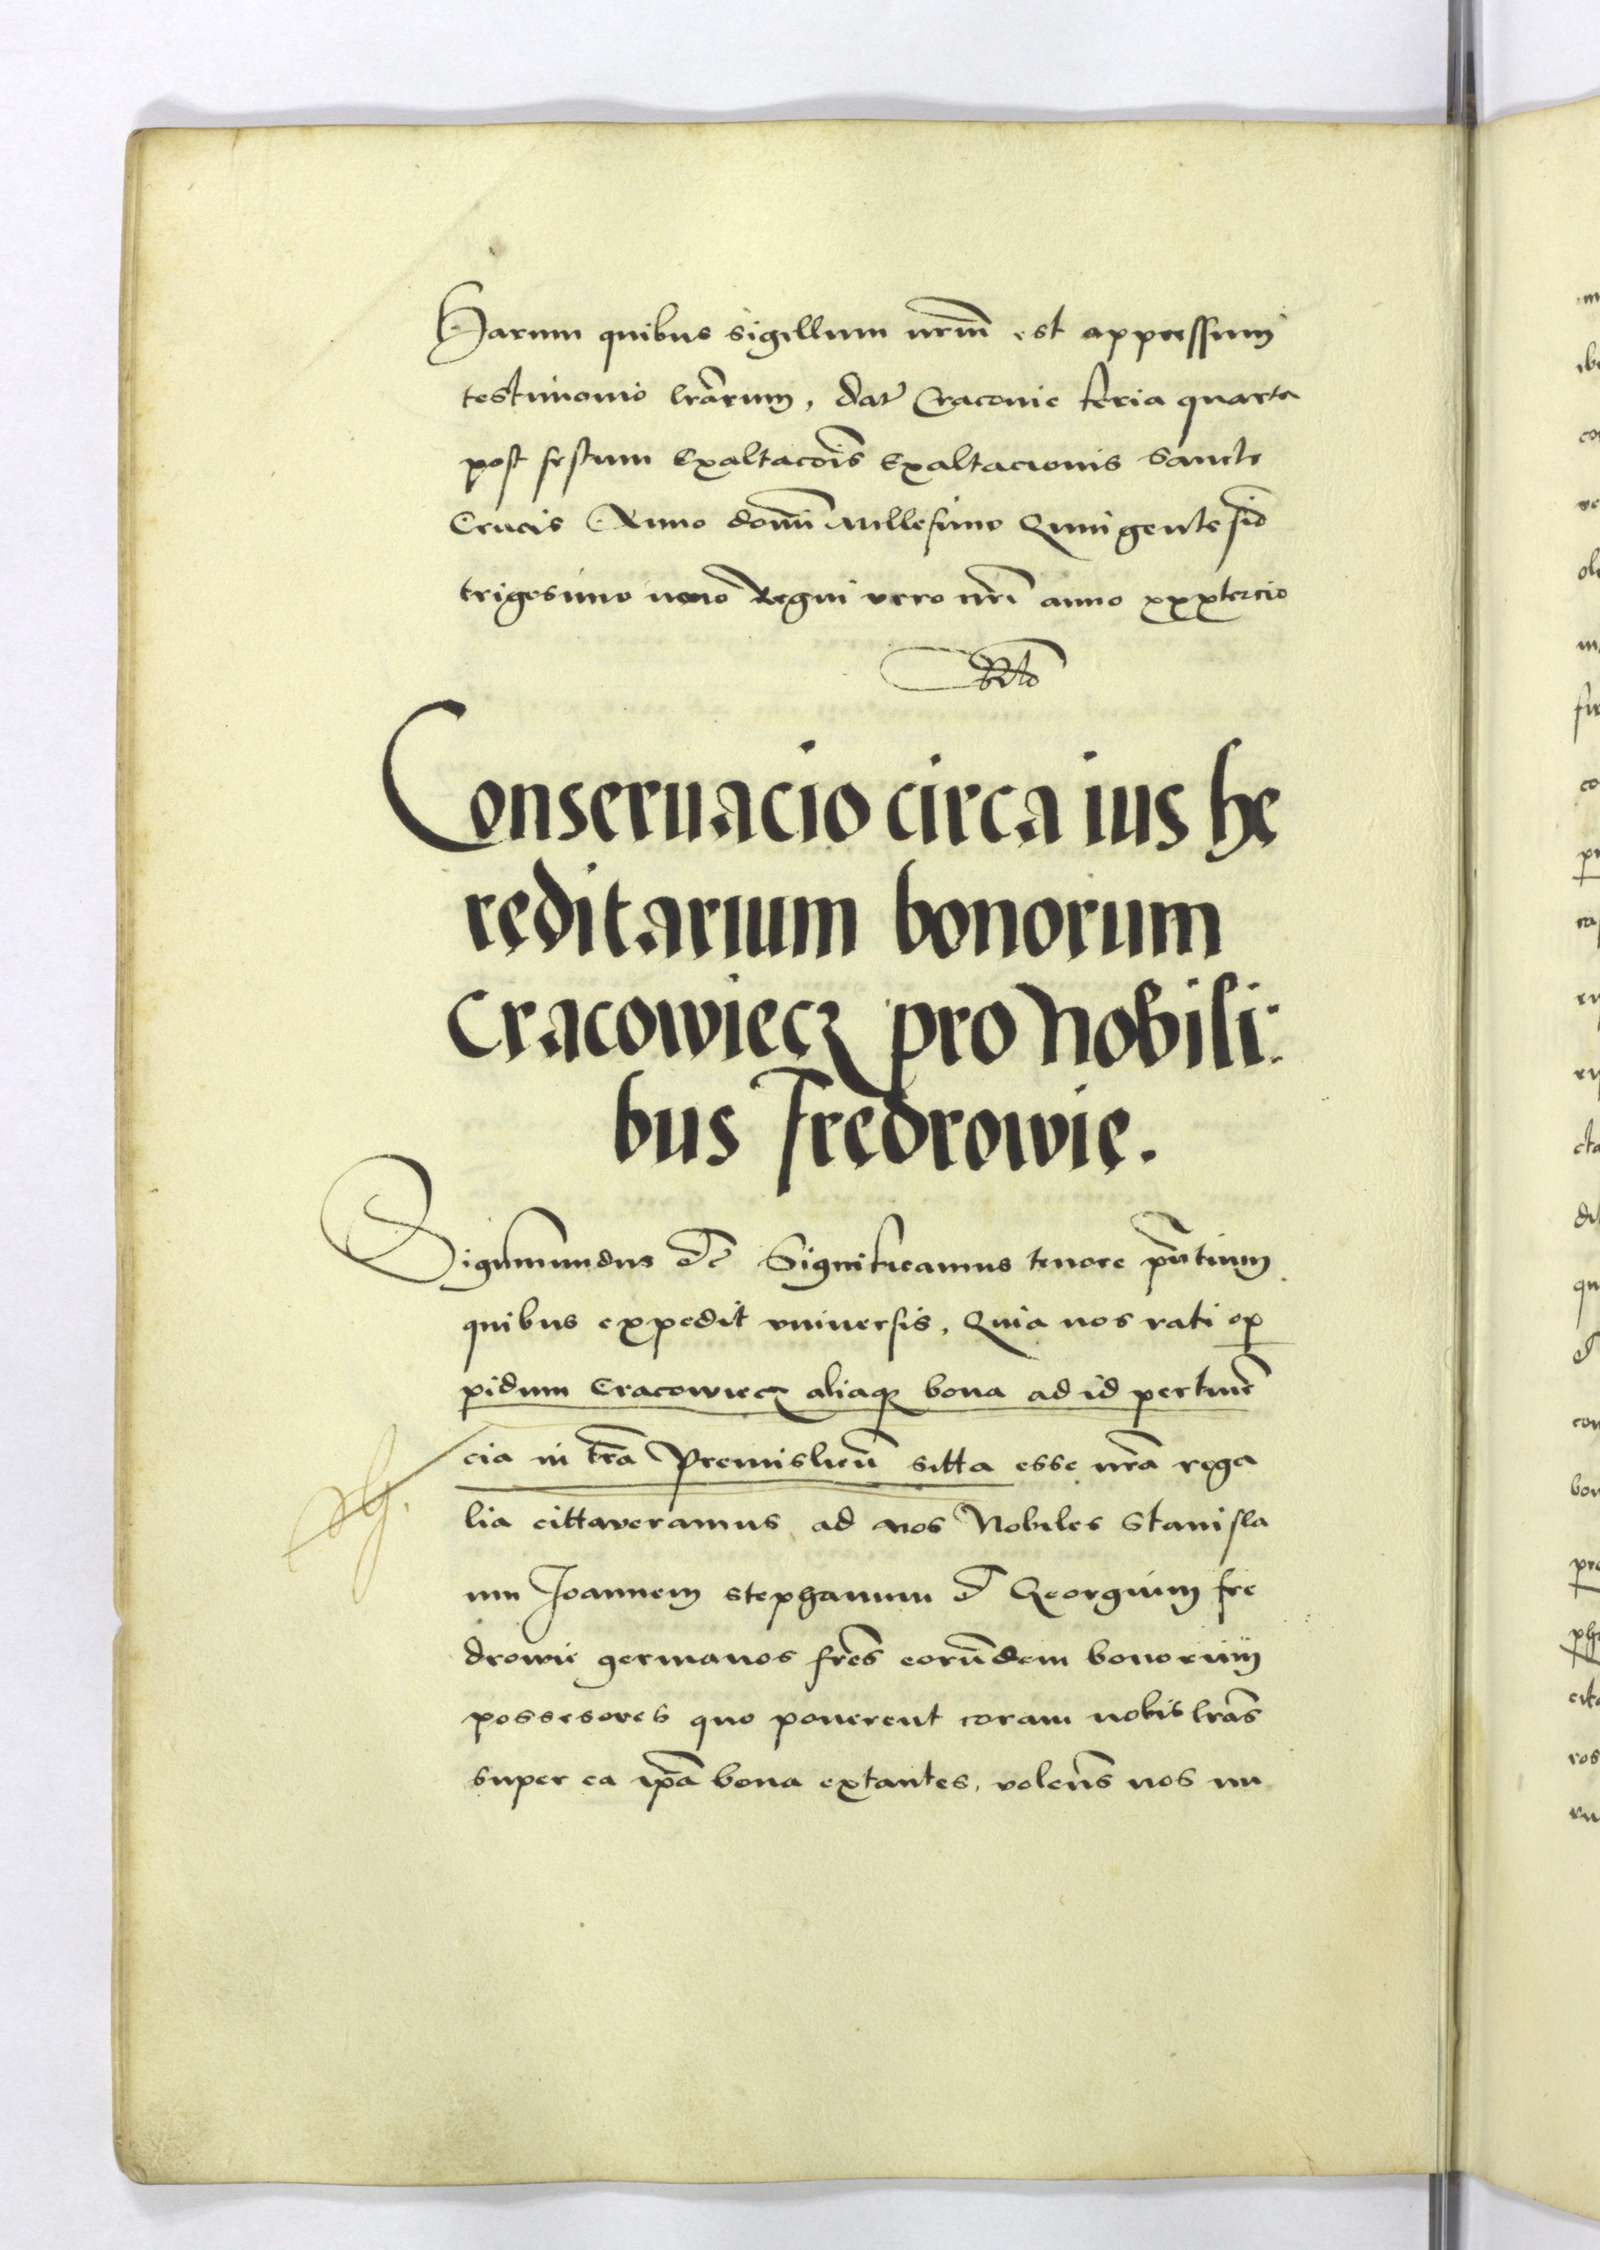 Harum quibus sigillum nrm̃ est appressum
testimonio lrãrum, dat̃ Cracovie feria quarta
post festum Exaltacõis Exaltacionis Sancte
Crucis Anno domĩ Millesimo Quingentesiõ
trigesimo nono Regni vero nrĩ anno xxxtercio
Conseruacio circa ius he
reditarium bonorum
Cracowiecz pro Nobili:
bus Fredrowie.
Sigismundus etc̃ Significamus tenore pñtium
quibus expedit vniuersis, Quia nos rati op
pidum Cracowiecz aliaq; bona ad id pertineñ
cia in trã Premislieñ sitta esse nrã rega
lia cittaveramus ad nos Nobiles Stanisla
um Joannem stephanum et Georgium fre
drowie germanos frẽs eorũdem bonorum
possesores quo ponerent coram nobis lrãs
super ea ipã bona extantes, voleñs nos nu